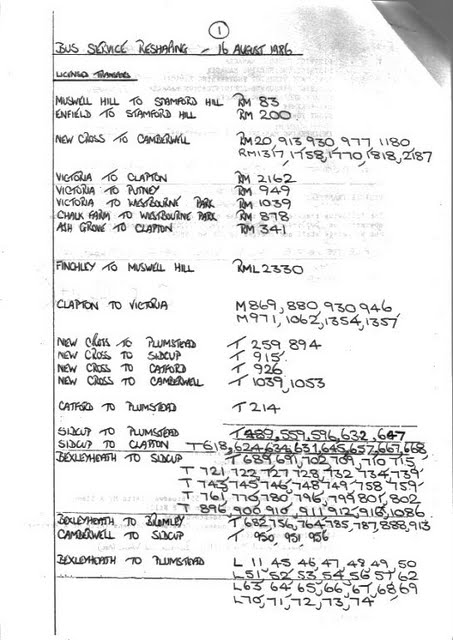 1
BUS SERVICE RESHAPING - 16 AUGUST 1986
LICENSED TRANSFERS
MUSWELL HILL TO STAMFORD HILL RM 83
ENFIELD TO STAMFORD HILL RM 200
NEW CROSS TO CAMBERWELL RM20, 913 930 977 1180
RM1317, 1758, 1770, 1818, 2187
VICTORIA TO CLAPTON RM 2162
VICTORIA TO PUTNEY RM 949
VICTORIA TO WESTBOURNE PARK RM 1039
CHALK FARM TO WESTBOURNE PARK RM 878
ASH GROVE TO CLAPTON RM 341
FINCHLEY TO MUSWELL HILL RML 2330
CLAPTON TO VICTORIA M869, 880 930 946
M971, 1062, 1354, 1357
NEW CROSS TO PLUMSTEAD T 259 894
NEW CROSS TO SIDCUP T 915
NEW CROSS TO CATFORD T 926
NEW CROSS TO CAMBERWELL T 1039, 1053
CATFORD TO PLUMSTEAD T 214
SIDCUP TO PLUMSTEAD T 489, 559, 596, 632, 647
SIDCUP TO CLAPTON T 618, 624, 634, 637, 645, 657, 667, 668
BEXLEYHEATH TO SIDCUP T 689, 691, 702, 709, 710, 715
T 721, 722, 727 728, 732, 734, 739
T 743, 745, 746, 748, 749, 758, 759
T 761, 770, 780, 796, 799, 801, 802
T 896, 900, 910, 911, 912, 918, 1086
BEXLEYHEATH TO BROMLEY T 682, 756, 764, 785, 787, 888, 913
CAMBERWELL TO SIDCUP T 950, 951, 956
BEXLEYHEATH TO PLUMSTEAD L 11, 45 46, 47, 48, 49, 50
L51, 52, 53, 54, 56, 57, 62
L63 64, 65, 66, 67, 68, 69
L70, 71, 72, 73, 74